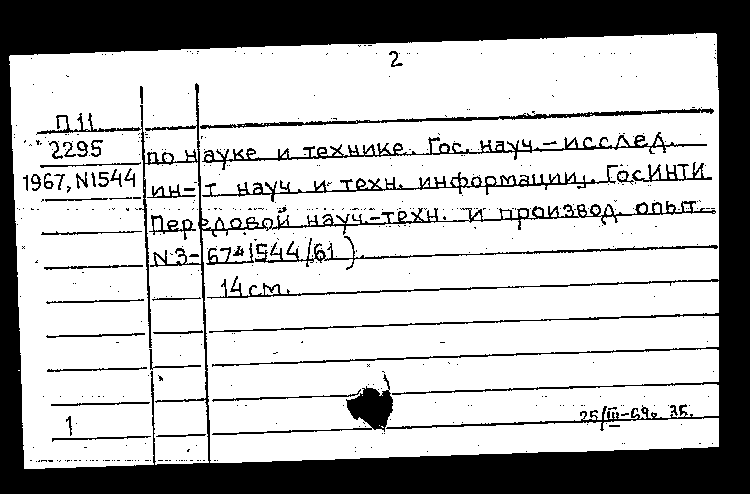 2
П 11
2295
1967, N1544
по науке и технике. Гос. науч.-исслед.
ин-т науч. и техн. информации. ГосИНТИ
Передовой науч.-техн. и производ. опыт.
N 3-67-1544/61).
14 см.
1
25/III-69.